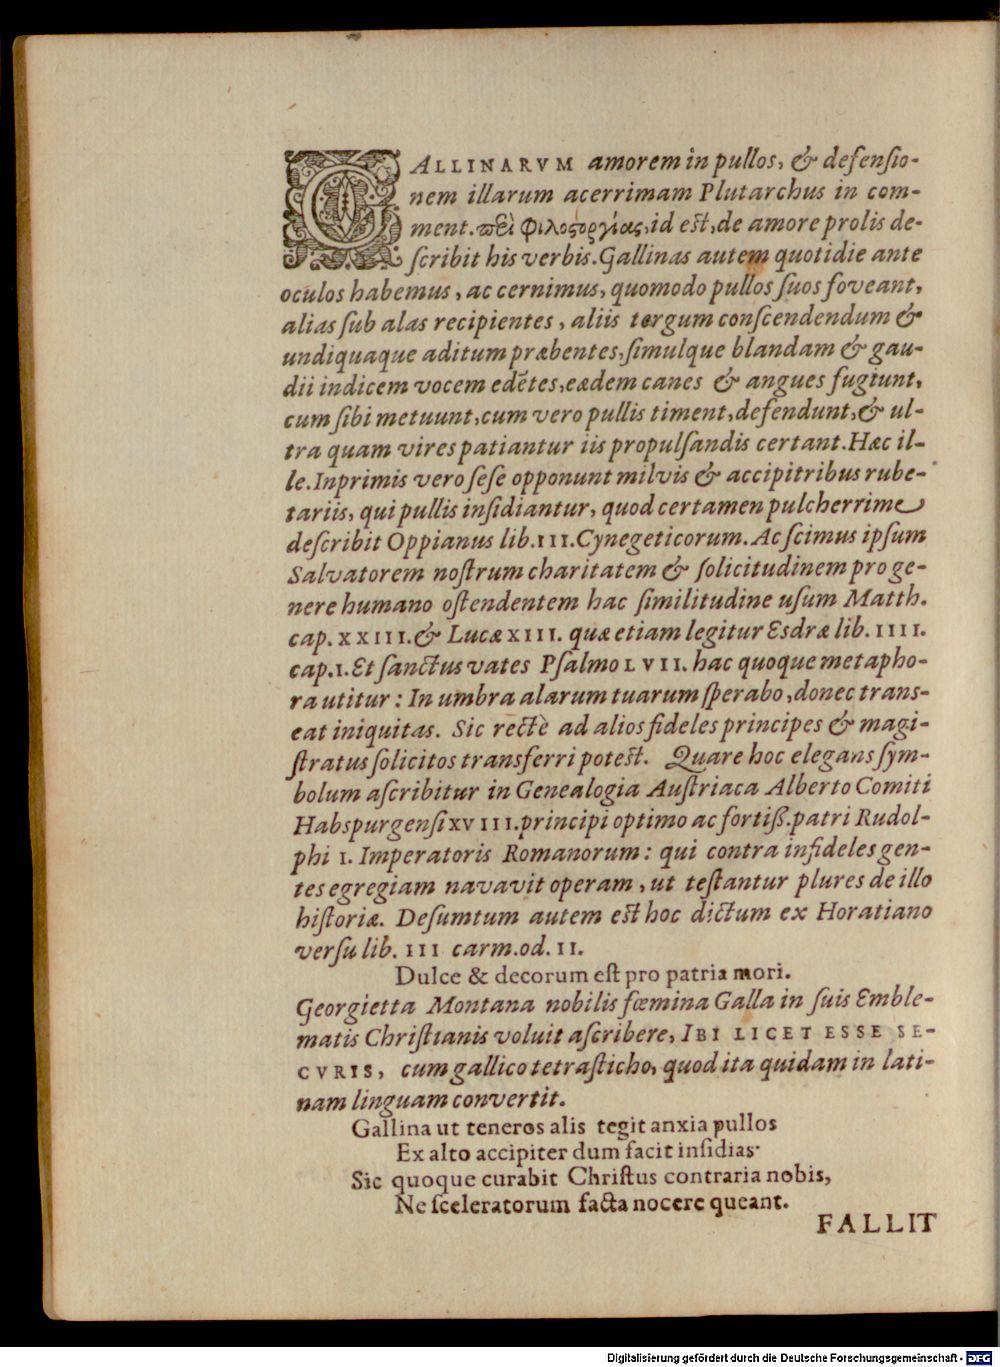 GALLINARVM amorem in pullos, & defensio-
nem illarum acerrimam Plutarchus in com-
ment. πεὶ Φιλοςοργίας, id est, de amore prolis de-
scribit his verbis. Gallinas autem quotidie ante
oculos habemus, ac cernimus, quomodo pullos suos foveant,
alias sub alas recipientes, aliis tergum conscendendum &
undiquaque aditum præbentes, simulque blandam & gau-
dii indicem vocem edẽtes, eædem canes & angues fugiunt,
cum sibi metuunt, cum vero pullis timent, defendunt, & ul-
tra quam vires patiantur iis propulsandis certant. Hæc il-
le. Inprimis vero sese opponunt milvis & accipitribus rube-
tariis, qui pullis insidiantur, quod certamen pulcherrime
describit Oppianus lib. III. Cynegeticorum. Ac scimus ipsum
Salvatorem nostrum charitatem & solicitudinem pro ge-
nere humano ostendentem hac similitudine usum Matth.
cap. XXIII. & Lucæ XIII. quæ etiam legitur Esdræ lib. IIII.
cap. I. Et sanctus vates Psalmo LVII. hac quoque metapho-
ra utitur: In umbra alarum tuarum sperabo, donec trans-
eat iniquitas. Sic rectè ad alios fideles principes & magi-
stratus solicitos transferri potest. Quare hoc elegans sym-
bolum ascribitur in Genealogia Austriaca Alberto Comiti
Habspurgensi XVIII. principi optimo ac fortiß. patri Rudol-
phi I. Imperatoris Romanorum: qui contra infideles gen-
tes egregiam navavit operam, ut testantur plures de illo
historiæ. Desumtum autem est hoc dictum ex Horatiano
versu lib. III carm. od. II.
Dulce & decorum est pro patria mori.
Georgietta Montana nobilis fœmina Galla in suis Emble-
matis Christianis voluit ascribere, IBI LICET ESSE SE-
CVRIS, cum gallico tetrasticho, quod ita quidam in lati-
nam linguam convertit.
Gallina ut teneros alis tegit anxia pullos
Ex alto accipiter dum facit insidias·
Sic quoque curabit Christus contraria nobis,
Ne sceleratorum facta nocere queant.
FALLIT
Digitalisierung gefördert durch die Deutsche Forschungsgemeinschaft - DFG